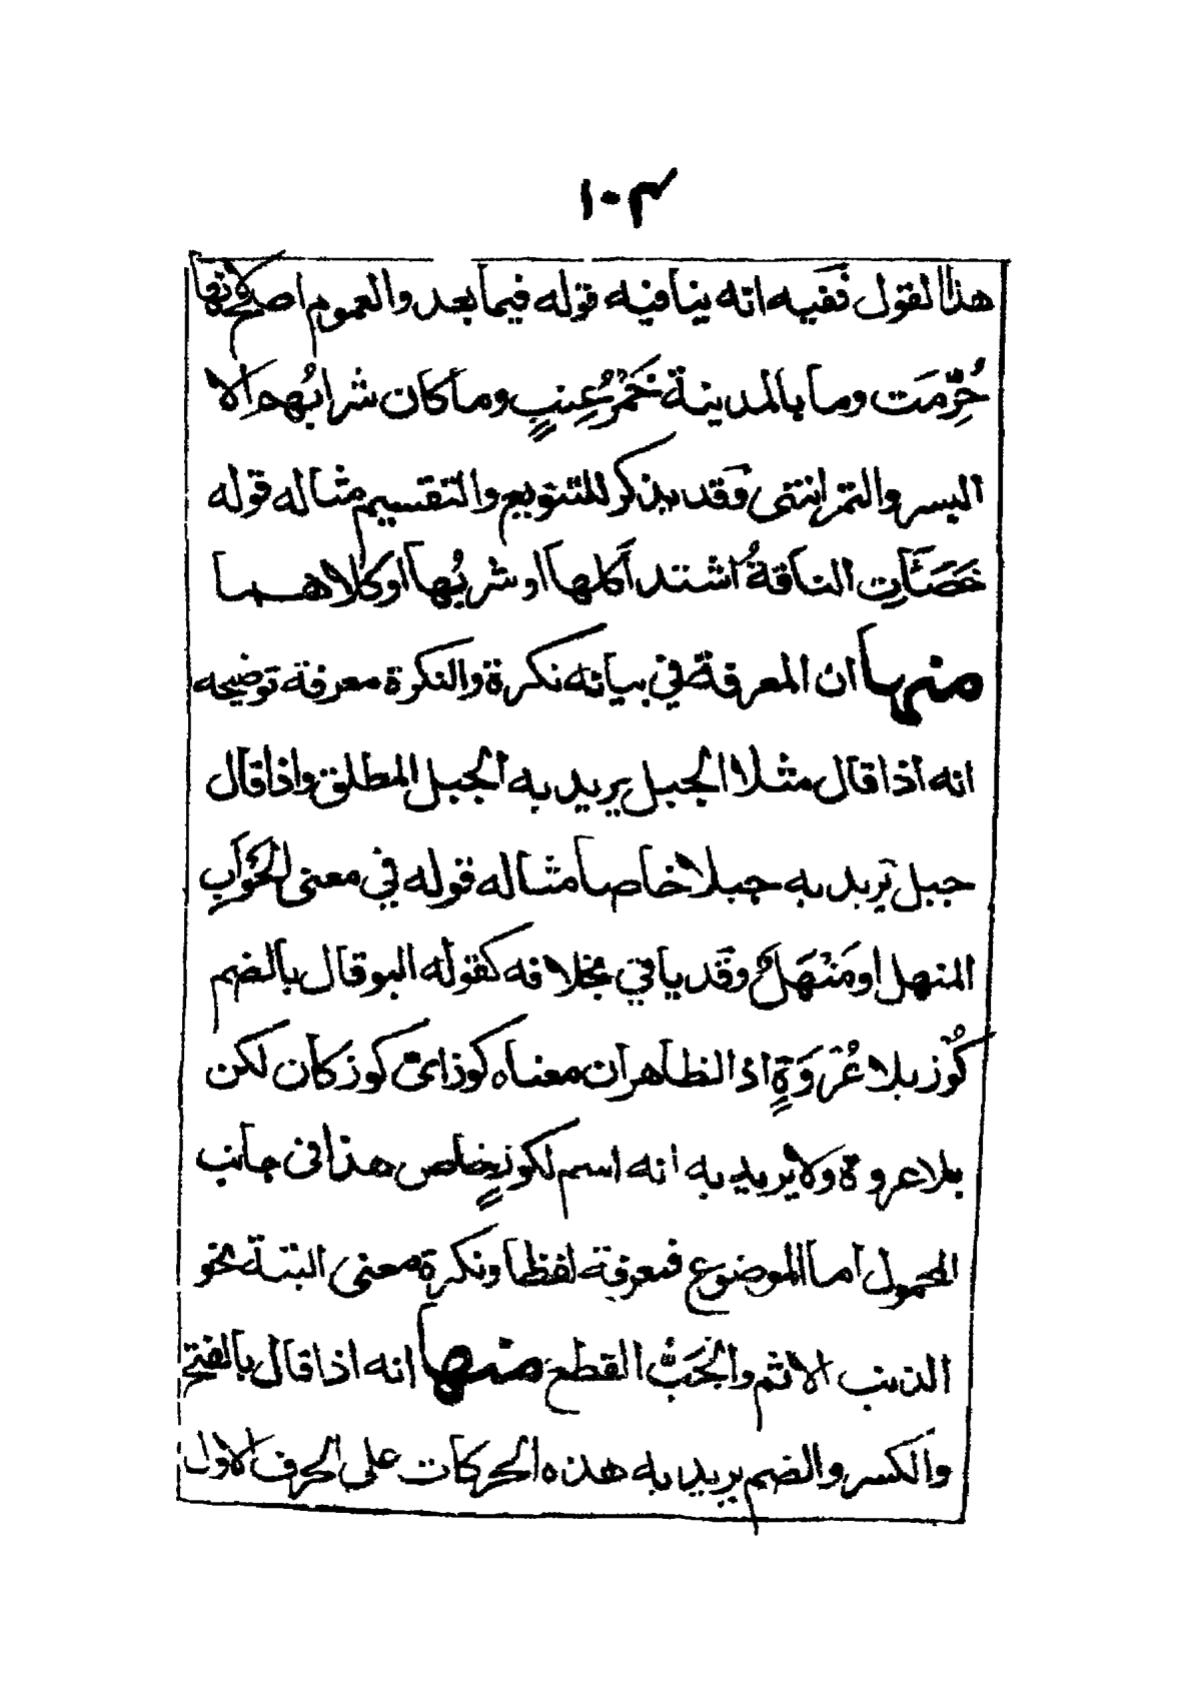 ١٠٣
هذا القول ففيه انه ينافيه قوله فيما بعد والعموم اصح لانها
حُرِّمَت وما بالمدينة خَمْرُ عِنبٍ وما كان شرابُهم الا
البسر والتمر انتهى وقد يذكر للتنويع والتقسيم مثاله قوله
خَصَأَتِ الناقةُ اشتد أكلها او شربُها او كلاهما
منها ان المعرفة في بيانه نكرة والنكرة معرفة توضيحه
انه اذا قال مثلا الجبل يريد به الجبل المطلق واذا قال
جبل يريد به جبلا خاصا مثاله قوله في معنى الحَوْأَبِ
المنهل او مَنْهَلٌ وقد ياتي بخلافه كقوله البو قال بالضم
كُوز بلا عُرْوَةٍ اذ الظاهر ان معناه كوز اىّ كوز كان لكن
بلا عروة ولا يريد به انه اسم لكوزٍ خاص هذا فى جانب
المحمول اما الموضوع فمعرفة لفظا ونكرة معنى البتة نحو
الذنب الاثم والجَبُّ القطع منها انه اذا قال بالفتح
والكسر والضم يريد به هذه الحركات على الحرف الاول